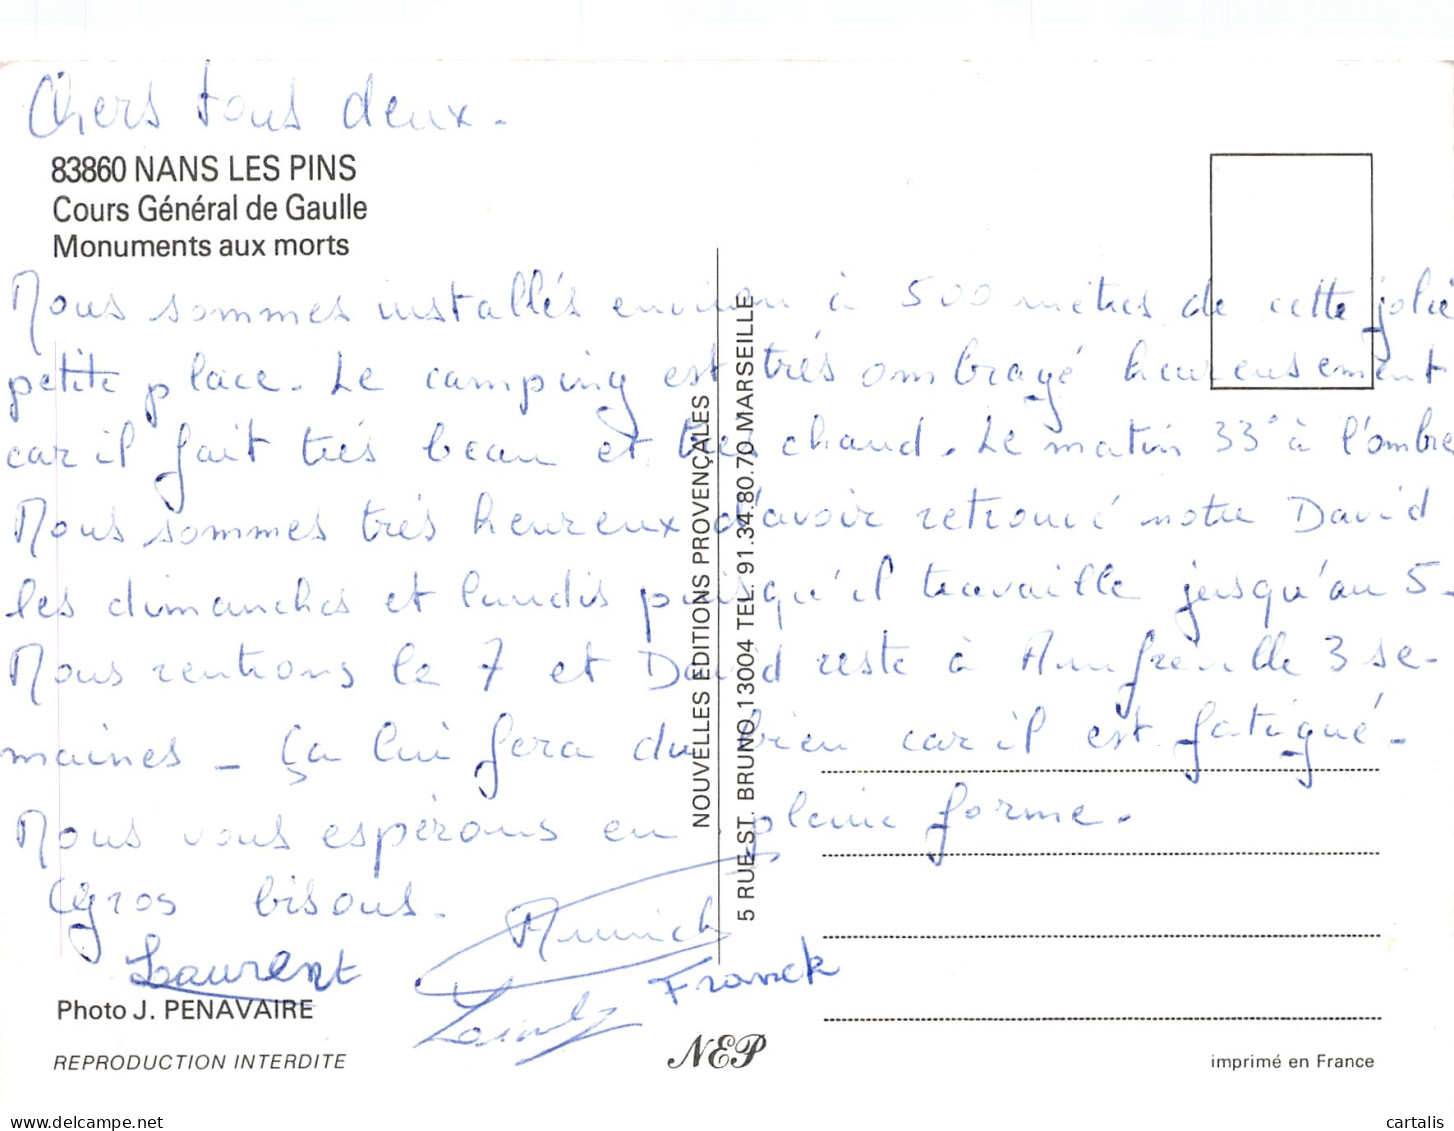 Chers tous deux.
83860 NANS LES PINS
Cours Général de Gaulle
Monuments aux morts
Nous sommes installés environ à 500 mètres de cette jolie
petite place. Le camping est très ombragé heureusement
car il fait très beau et très chaud. Le matin 33° à l'ombre
Nous sommes très heureux d'avoir retrouvé notre David
les dimanches et lundis puisqu'il travaille jusqu'au 5.
Nous rentrons le 7 et David reste à 3 se-
maines - Ça lui fera du bien car il est fatigué.
Nous vous espérons en pleine forme.
Gros bisous.
Laurent
Franck
NOUVELLES EDITIONS PROVENÇALES
5 RUE ST. BRUNO 13004 TEL. 91.34.80.70 MARSEILLE
Photo J. PENAVAIRE
REPRODUCTION INTERDITE
NEP
imprimé en France
cartalis
www.delcampe.net